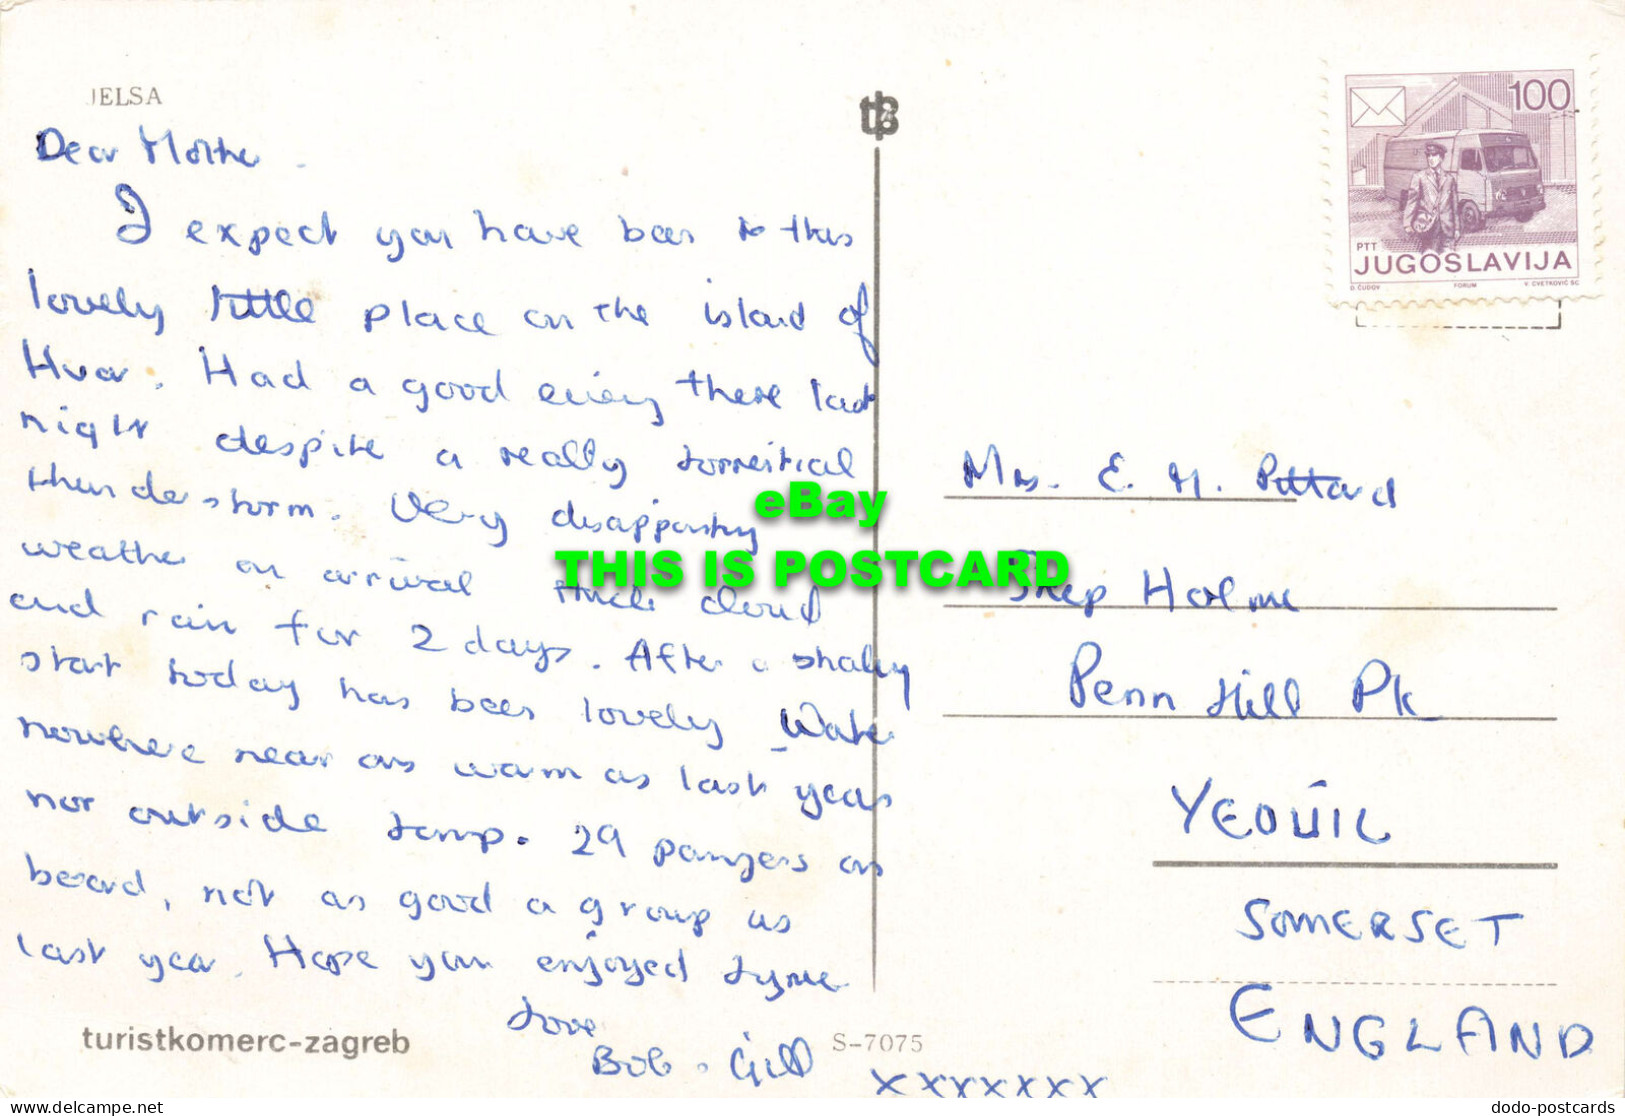 JELSA
Dear Mother
I expect you have been to this
lovely little place on the island of
Hvar. Had a good evening there last
night despite a really torrential
thunderstorm. Very disappointing
weather on arrival thick cloud
and rain for 2 days. After a shaky
start today has been lovely Water
nowhere near as warm as last years
nor outside temp. 29 pangers on
board, not as good a group as
last year. Hope you enjoyed Lyme
Love
Bob + Gill
xxxxxxx
turistkomerc-zagreb
S-7075
100
PTT
JUGOSLAVIJA
D. ČUDOV FORUM V. CVETKOVIĆ SC
Mrs. E. M. Pittard
Holme
Penn Hill Pk
YEOVIL
SOMERSET
ENGLAND
eBay
THIS IS POSTCARD
Imported by delcampe.net
dodo-postcards